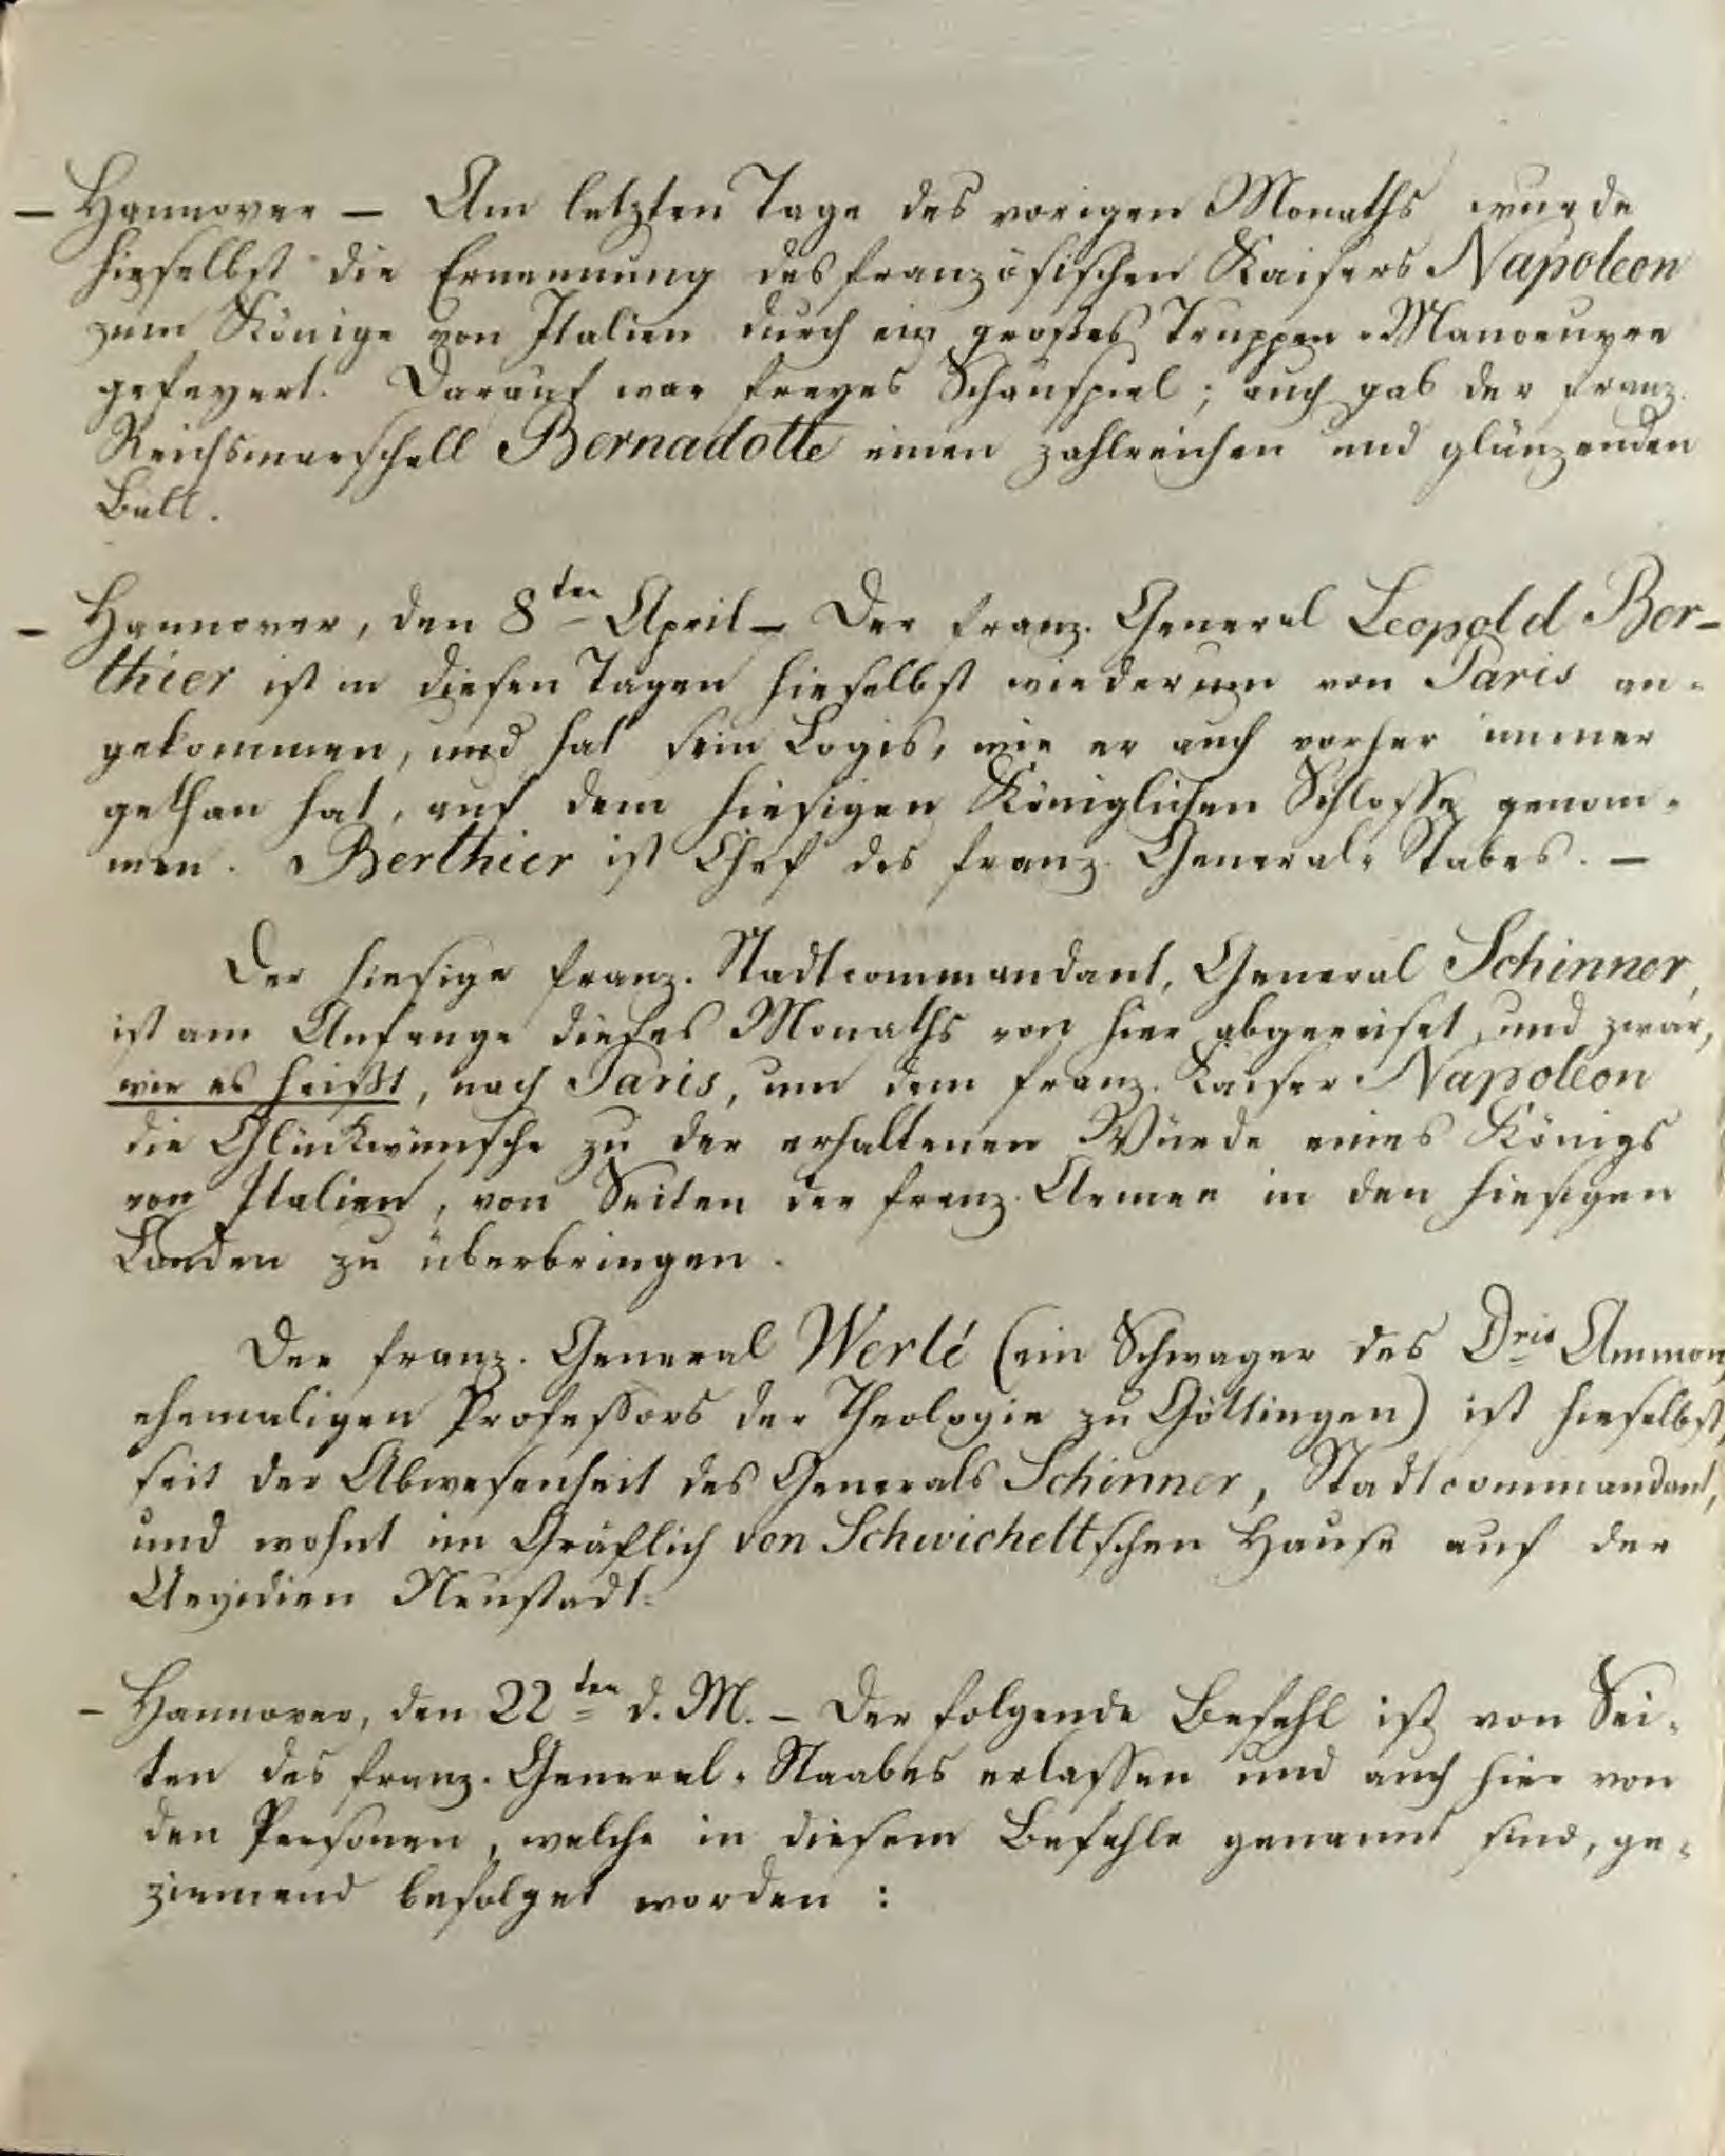 — Hannover — Am letzten Tage des vorigen Monaths wurde
hieselbst die Ernennung des französischen Kaisers Napoleon
zum Könige von Italien durch ein großes Truppen-Manoeuvre
gefeyert. Darauf war freyes Schauspiel; auch gab der franz.
Reichsmarschall Bernadotte einen zahlreichen und glänzenden
Ball.
— Hannover, den 8ten April — Der franz. General Leopold Ber-
thier ist in diesen Tagen hieselbst wiederum von Paris an-
gekommen, und hat sein Logis, wie er auch vorher immer
gethan hat, auf dem hiesigen Königlichen Schlosse genom-
men. Berthier ist Chef des franz. General-Stabes. —
Der hiesige franz. Stadtcommandant, General Schinner,
ist am Anfange dieses Monaths von hier abgereiset, und zwar,
wie es heißt, nach Paris, um dem franz. Kaiser Napoleon
die Glückwünsche zu der erhaltenen Würde eines Königs
von Italien, von Seiten der franz. Armee in den hiesigen
Landen zu überbringen.
Der franz. General Werlé (ein Schwager des Dris Ammon,
ehemaligen Professors der Theologie zu Göttingen) ist hieselbst,
seit der Abwesenheit des Generals Schinner, Stadtcommandant,
und wohnt im Gräflich von Schwicheltschen Hause auf der
Aegidien Neustadt.
— Hannover, den 22ten d. M. — Der folgende Befehl ist von Sei-
ten des franz. General-Staabes erlassen und auch hier von
den Personen, welche in diesem Befehle genannt sind, ge-
ziemend befolget worden :